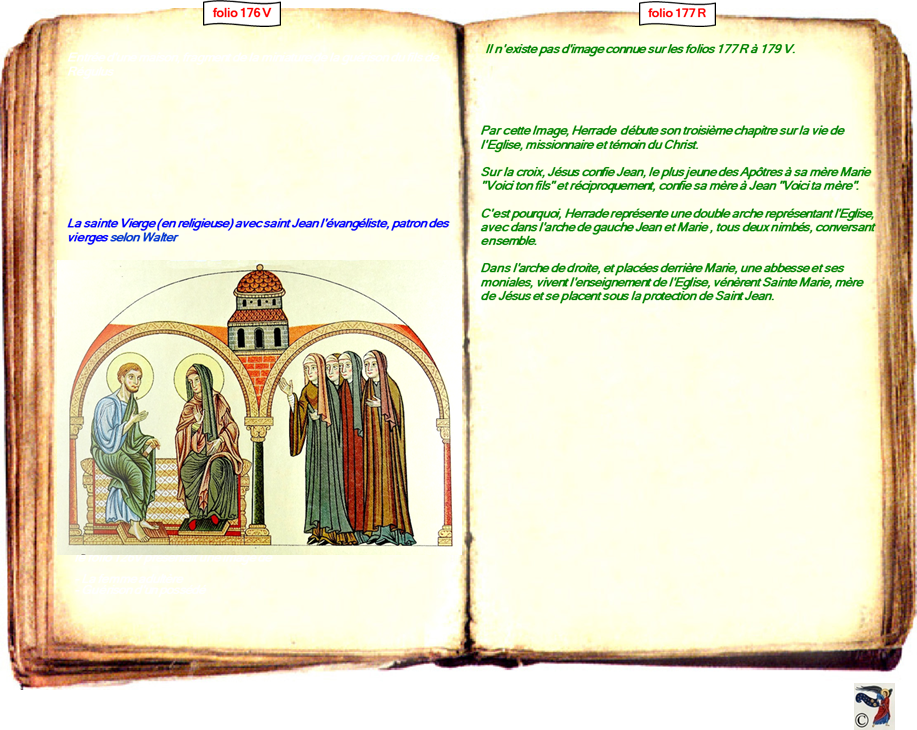 folio 176 V
La sainte Vierge (en religieuse) avec saint Jean l'évangéliste, patron des
vierges selon Walter
folio 177 R
Il n'existe pas d'image connue sur les folios 177 R à 179 V.
Par cette Image, Herrade débute son troisième chapitre sur la vie de
l'Eglise, missionnaire et témoin du Christ.
Sur la croix, Jésus confie Jean, le plus jeune des Apôtres à sa mère Marie
"Voici ton fils" et réciproquement, confie sa mère à Jean "Voici ta mère".
C'est pourquoi, Herrade représente une double arche représentant l'Eglise,
avec dans l'arche de gauche Jean et Marie , tous deux nimbés, conversant
ensemble.
Dans l'arche de droite, et placées derrière Marie, une abbesse et ses
moniales, vivent l'enseignement de l'Eglise, vénèrent Sainte Marie, mère
de Jésus et se placent sous la protection de Saint Jean.
©